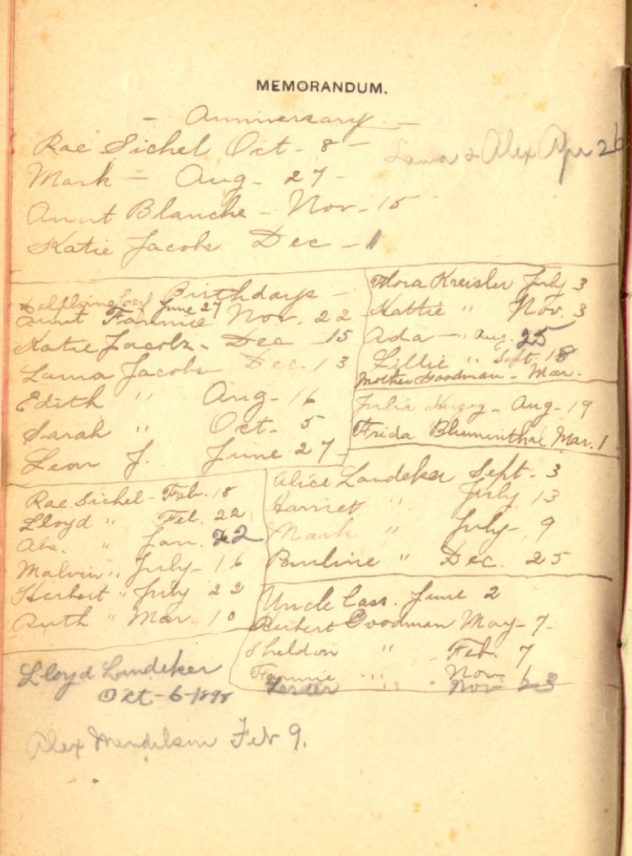 MEMORANDUM.
- Anniversary -
Rae Sichel Oct - 8 -
Lama & Alex Apr 26
Mark - Aug - 27 -
Aunt Blanche - Nov - 15
Katie Jacobs Dec - 1
Birthdays -
June 27
Aunt Fannie Nov. 22
Katie Jacobs - Dec 15
Lama Jacobs Dec. 13
Edith " Aug - 16
Sarah " Oct. 5
Leon J. June 27 -
Flora Kreisler July 3
Hattie " Nov. 3
Ada - " Aug. 25
Lillie " Sept. 18
Mother Goodman - Mar.
Julia Herzog - Aug - 19
Frida Blumenthal Mar. 1
Rae Sichel - Feb. 18
Lloyd " Feb. 22
Abs. " Jan. 22
Malvin " July - 16
Herbert " July 22
Ruth " Mar. 10
Alice Landeker Sept. 3
Harriet " July 13
Mark " July - 9
Pauline " Dec. 25
Uncle Cass. June 2
Herbert Goodman May - 7 -
Sheldon " Feb. 7
Fannie " Nov.
Lester " Nov 23
Lloyd Landeker
Oct - 6 - 1898
Alex Mendelson Feb 9.